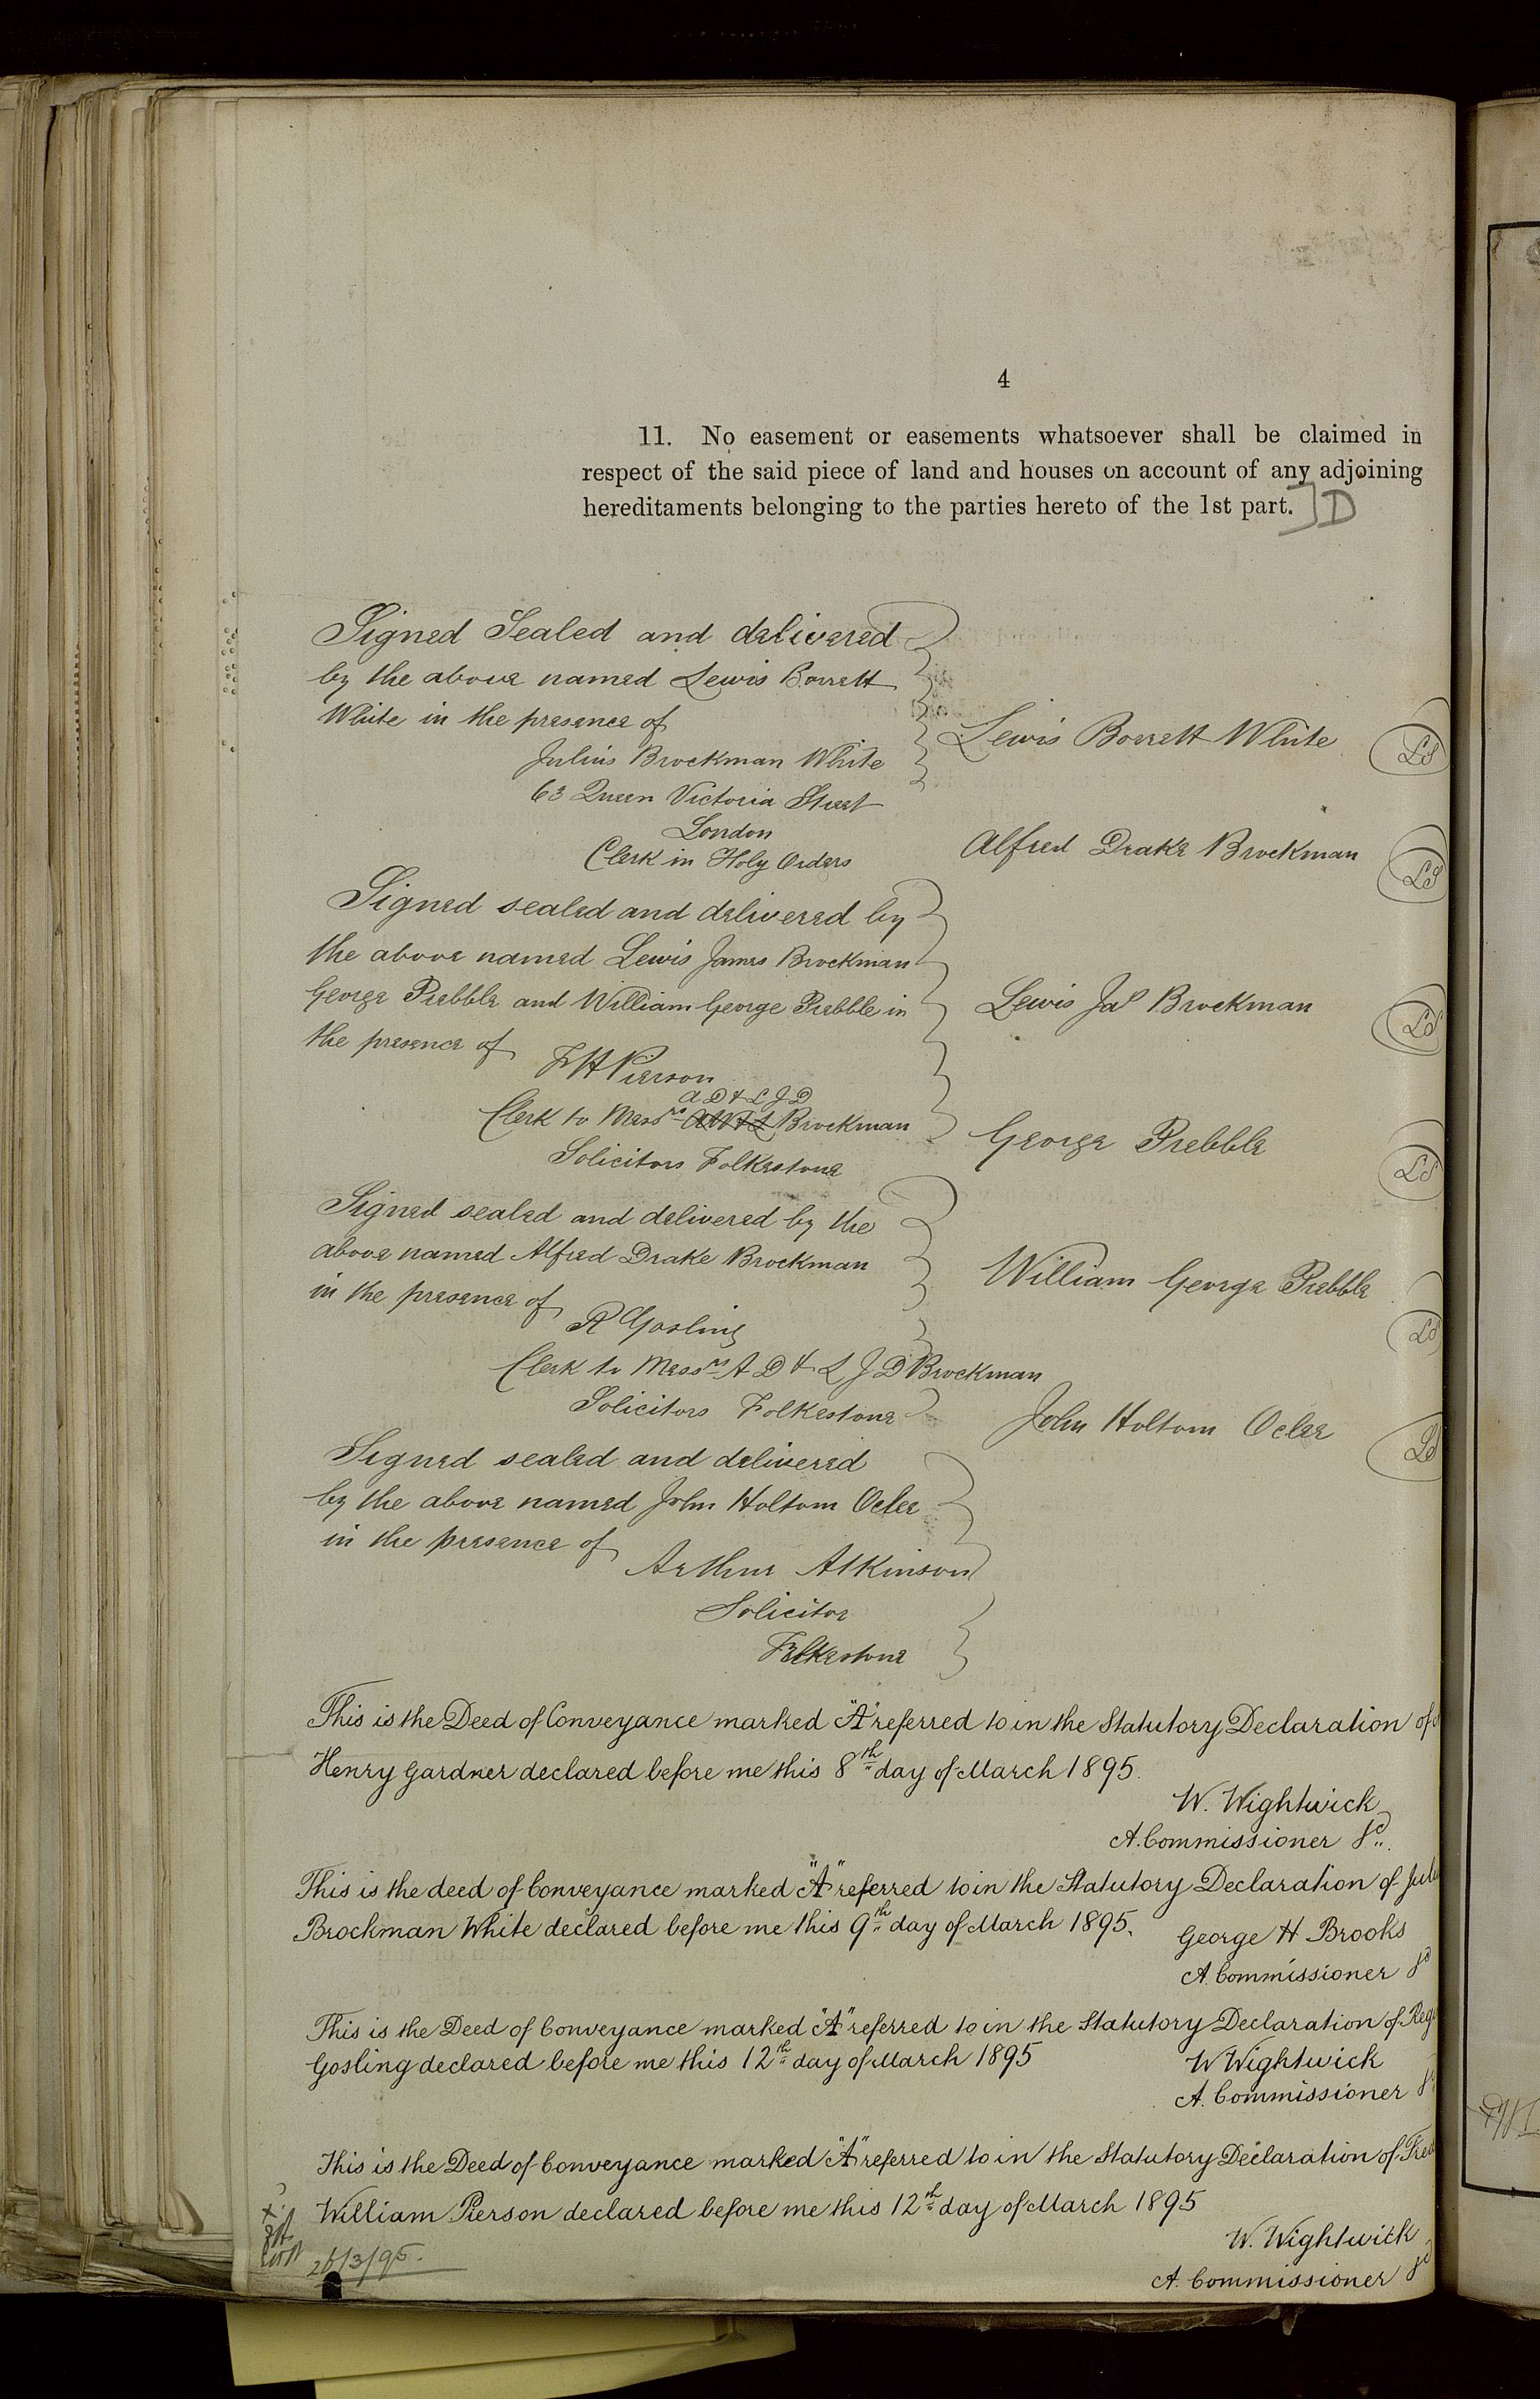 4
11. No easement or easements whatsoever shall be claimed in
respect of the said piece of land and houses on account of any adjoining
hereditaments belonging to the parties hereto of the 1st part. ] D
Signed Sealed and delivered
by the above named Lewis Borrett
White in the presence of
Julius Brockman White
63 Queen Victoria Street
London
Clerk in Holy Orders
Lewis Borrett White LS
Alfred Drake Brockman LS
Signed sealed and delivered by
the above named Lewis James Brockman
George Prebble and William George Prebble in
the presence of
F H Pierson
A D & L J D
Clerk to Messrs Brockman
Solicitors Folkestone
Lewis Jas Brockman LS
George Prebble LS
Signed sealed and delivered by the
above named Alfred Drake Brockman
in the presence of
R Gosling
Clerk to Messrs A D & L J D Brockman
Solicitors Folkestone
William George Prebble LS
John Holtom Ocler LS
Signed sealed and delivered
by the above named John Holtom Ocler
in the presence of
Arthur Atkinson
Solicitor
Folkestone
This is the Deed of Conveyance marked "A" referred to in the Statutory Declaration of
Henry Gardner declared before me this 8th day of March 1895.
W. Wightwick
A. Commissioner &c.
This is the deed of Conveyance marked "A" referred to in the Statutory Declaration of
Brockman White declared before me this 9th day of March 1895.
George H Brooks
A. Commissioner &c
This is the Deed of Conveyance marked "A" referred to in the Statutory Declaration of Reg
Gosling declared before me this 12th day of March 1895
W Wightwick
A. Commissioner &c
This is the Deed of Conveyance marked "A" referred to in the Statutory Declaration of Fred
William Pierson declared before me this 12th day of March 1895
W. Wightwick
A. Commissioner &c
26/3/95.